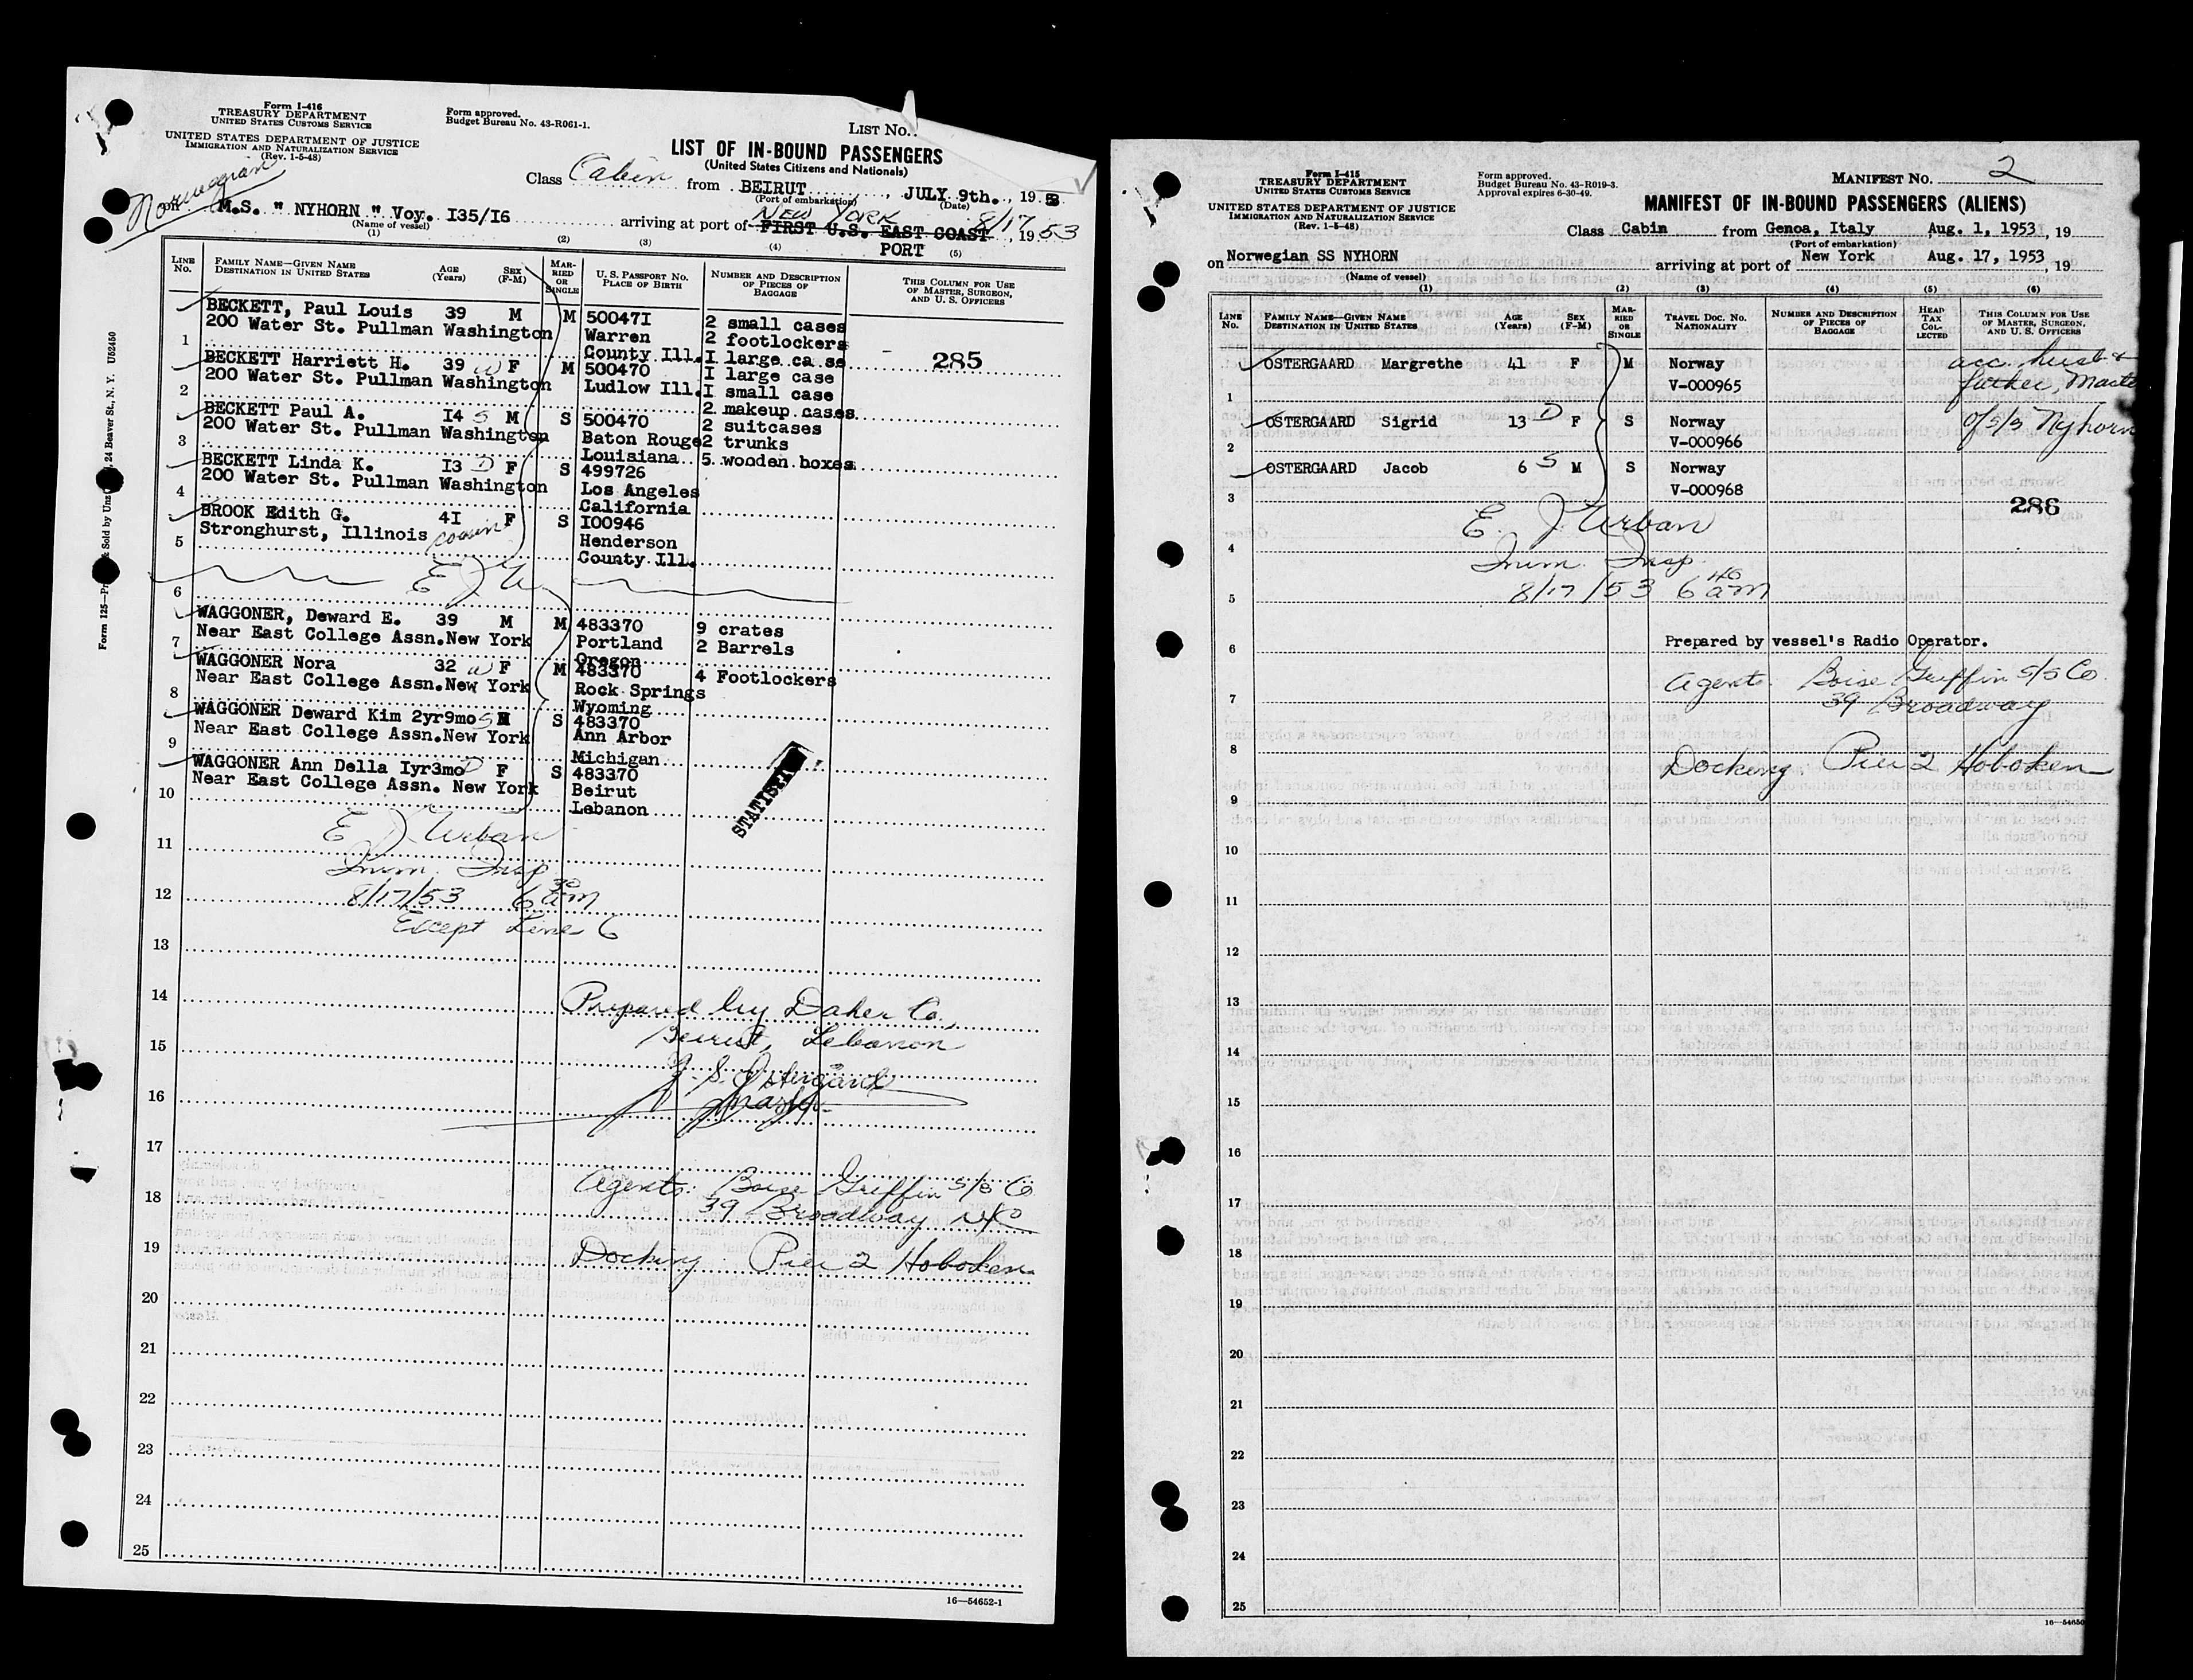 Form I-416
TREASURY DEPARTMENT
UNITED STATES CUSTOMS SERVICE
UNITED STATES DEPARTMENT OF JUSTICE
IMMIGRATION AND NATURALIZATION SERVICE
(Rev. 1-5-48)
Form approved.
Budget Bureau No. 43-R061-1.
LIST NO.
LIST OF IN-BOUND PASSENGERS
(United States Citizens and Nationals)
Norwegian
Class Cabin from BEIRUT, JULY 9th., 1953
(Port of embarkation) (Date)
on M.S. " NYHORN " Voy. I35/I6 arriving at port of NEW YORK FIRST U.S. EAST COAST PORT 8/17, 1953
(Name of vessel)
(1) (2) (3) (4) (5)
LINE No. FAMILY NAME—GIVEN NAME DESTINATION IN UNITED STATES AGE (Years) SEX (F-M) MARRIED OR SINGLE U. S. PASSPORT NO. PLACE OF BIRTH NUMBER AND DESCRIPTION OF PIECES OF BAGGAGE THIS COLUMN FOR USE OF MASTER, SURGEON, AND U. S. OFFICERS
BECKETT, Paul Louis 39 M M 50047I 2 small cases
200 Water St. Pullman Washington Warren 2 footlockers
1 County Ill. I large ca se 285
BECKETT Harriett H. 39 W F M 500470 I large case
200 Water St. Pullman Washington Ludlow Ill. I small case
2 2 makeup cases
BECKETT Paul A. I4 S M S 500470 2 suitcases
200 Water St. Pullman Washington Baton Rouge 2 trunks
3 Louisiana 5 wooden boxes
BECKETT Linda K. I3 D F S 499726
200 Water St. Pullman Washington Los Angeles
4 California
BROOK Edith G. 4I F S I00946
Stronghurst, Illinois cousin Henderson
5 County Ill.
6 E J U
WAGGONER, Deward E. 39 M M 483370 9 crates
Near East College Assn.New York Portland 2 Barrels
7 Oregon
WAGGONER Nora 32 W F M 483370 4 Footlockers
Near East College Assn.New York Rock Springs
8 Wyoming
WAGGONER Deward Kim 2yr9mo S M S 483370
Near East College Assn.New York Ann Arbor
9 Michigan
WAGGONER Ann Della Iyr3mo D F S 483370
Near East College Assn. New York Beirut
10 Lebanon
E J Urban
11
Imm. Insp
12 8/17/53 6 30 am
Except Line 6
13
14 Prepared by Daher Co.,
15 Beirut, Lebanon
J. S. Ostergaard
16 Master
17
Agents: Boise Griffin S/S Co
18 39 Broadway NYC
19 Docking Pier 2 Hoboken
20
21
22
23
24
25
16—54652-1
Form I-415
TREASURY DEPARTMENT
UNITED STATES CUSTOMS SERVICE
UNITED STATES DEPARTMENT OF JUSTICE
IMMIGRATION AND NATURALIZATION SERVICE
(Rev. 1-5-48)
Form approved.
Budget Bureau No. 43-R019-3.
Approval expires 6-30-49.
MANIFEST NO. 2
MANIFEST OF IN-BOUND PASSENGERS (ALIENS)
Class Cabin from Genoa, Italy Aug. 1, 1953, 19
(Port of embarkation)
on Norwegian SS NYHORN arriving at port of New York Aug. 17, 1953, 19
(Name of vessel)
(1) (2) (3) (4) (5) (6)
LINE No. FAMILY NAME—GIVEN NAME DESTINATION IN UNITED STATES AGE (Years) SEX (F-M) MARRIED OR SINGLE TRAVEL DOC. NO. NATIONALITY NUMBER AND DESCRIPTION OF PIECES OF BAGGAGE HEAD TAX COLLECTED THIS COLUMN FOR USE OF MASTER, SURGEON, AND U. S. OFFICERS
OSTERGAARD Margrethe 41 F M Norway acc. husb &
1 V-000965 father, Maste
OSTERGAARD Sigrid 13 D F S Norway of S/S Nyhorn
2 V-000966
OSTERGAARD Jacob 6 S M S Norway
3 V-000968 286
E. J Urban
4 Imm. Insp.
5 8/17/53 6 40 am
6 Prepared by vessel's Radio Operator.
Agents: Boise Griffin S/S Co.
7 39 Broadway
8 Docking: Pier 2 Hoboken
9
10
11
12
13
14
15
16
17
18
19
20
21
22
23
24
25